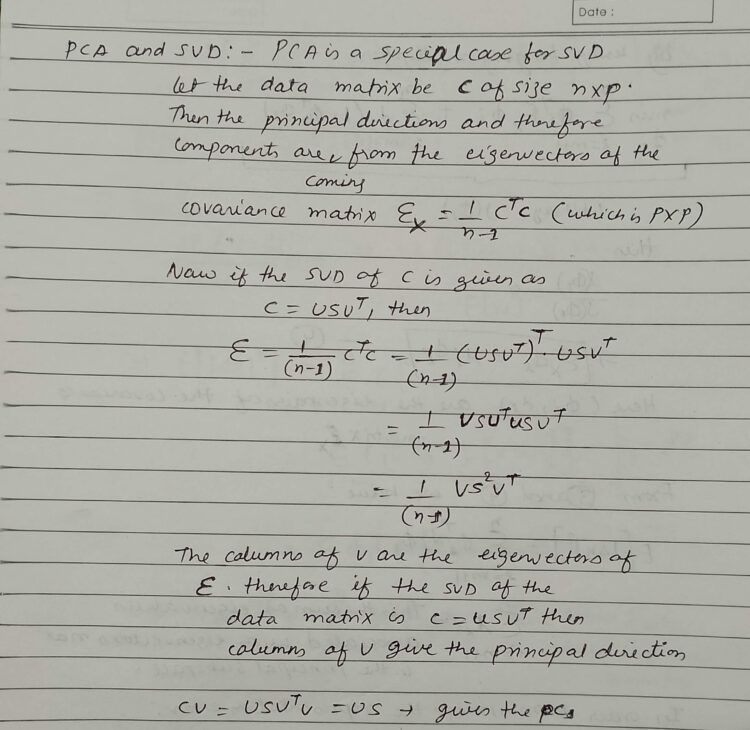 Date :
PCA and SVD:- PCA is a special case for SVD
let the data matrix be C of size nxp.
Then the principal directions and therefore
components are, from the eigenvectors of the
coming
covariance matrix Ɛx = 1/n-1 CᵀC (which is PXP)
Now if the SVD of C is given as
C = USVᵀ, then
Ɛ = 1/(n-1) CᵀC = 1/(n-1) (USVᵀ)ᵀ. USVᵀ
= 1/(n-1) VSUᵀUSVᵀ
= 1/(n-1) VS²Vᵀ
The columns of V are the eigenvectors of
Ɛ. therefore if the SVD of the
data matrix is C = USVᵀ then
columns of V give the principal direction
CV = USVᵀV = US → gives the PCs